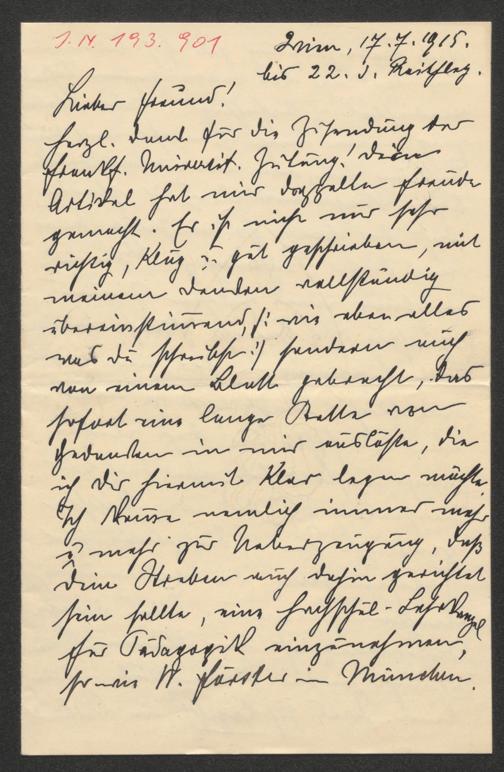 J. N. 193.901
Wien, 17.7.1915.
bis 22. d. Reithleg.
Lieber Freund!
herzl. Dank für die Zusendung der
Frankf. Universit. Zeitung! Dein
Artikel hat mir doppelte Freude
gemacht. Er ist nicht nur sehr
richtig, klug u. gut geschrieben, mit
meinem Denken vollständig
übereinstimmend, /: wie eben alles
was du schreibst :/ sondern auch
von einem Blatt gebracht, das
sofort eine lange Kette von
Gedanken in mir auslöste, die
ich dir hiermit klar legen möchte.
Ich komme nemlich immer mehr
u. mehr zur Ueberzeugung, daß
dein Streben auch dahin gerichtet
sein sollte, eine Hochschul-Lehrkanzel
für Pädagogik einzunehmen,
so wie W. Förster in München.